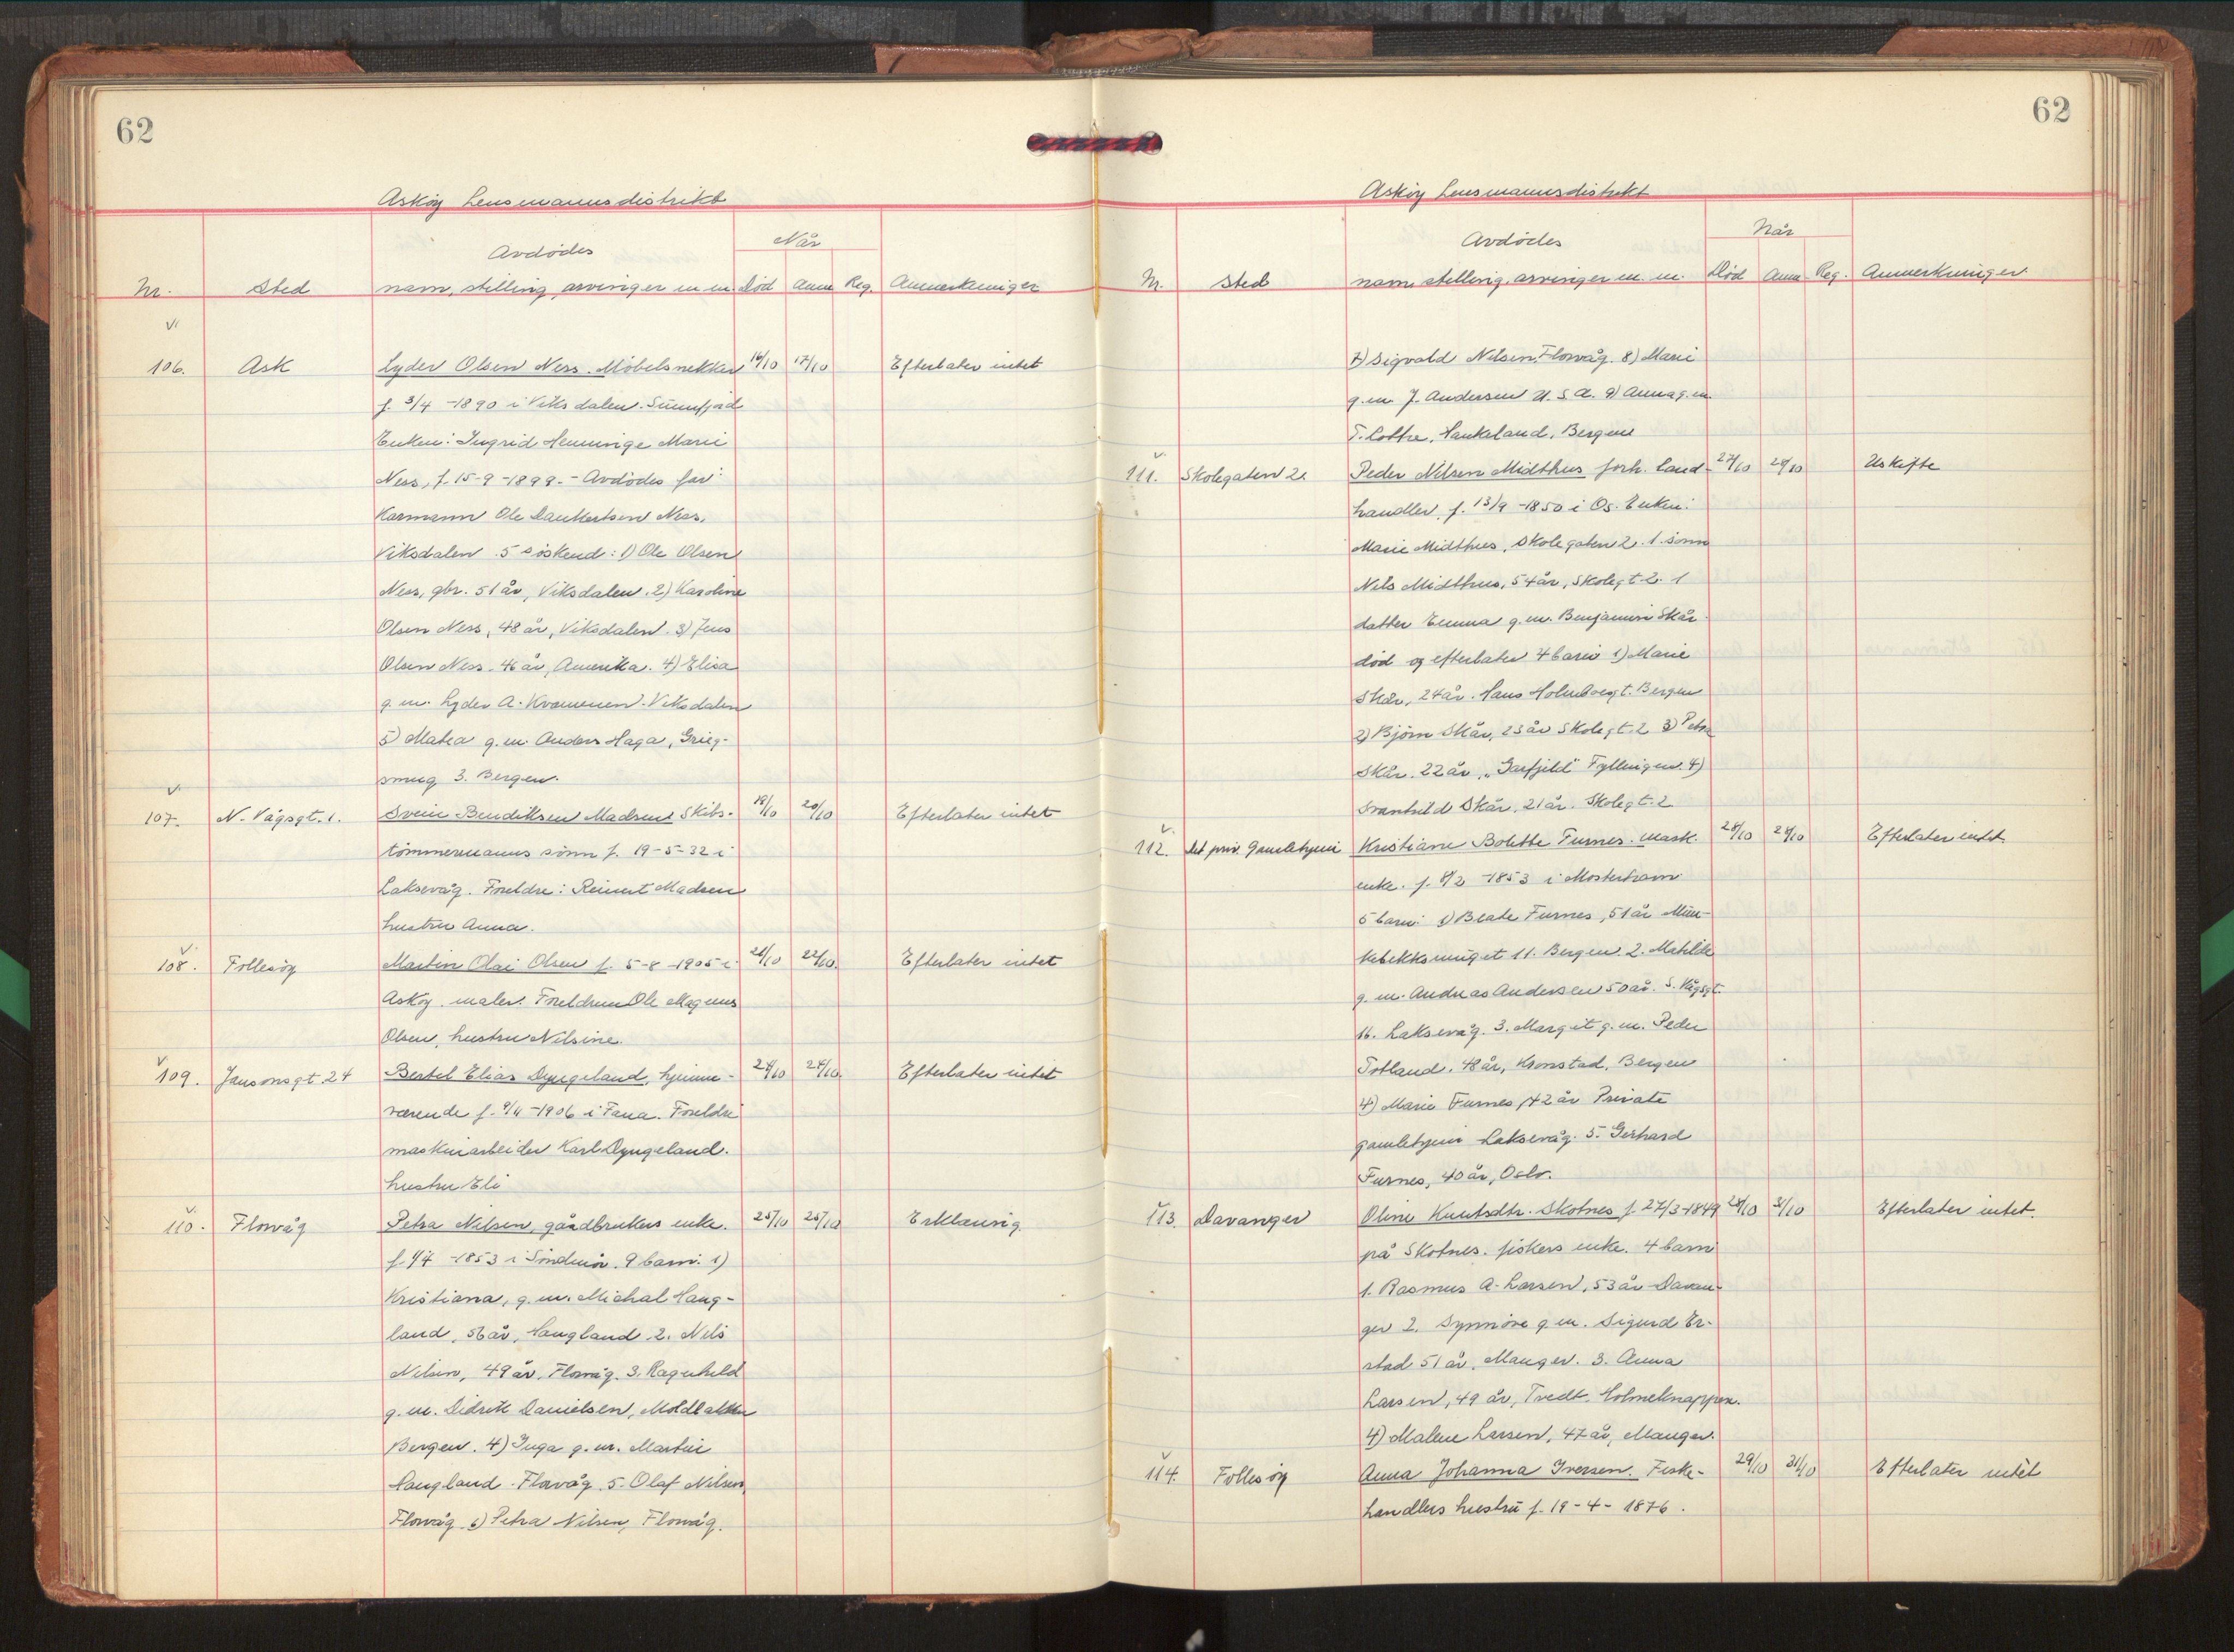 62
Askøy Lensmannsdistrikt
Avdödes
Når
Nr. Sted navn, stilling, arvinger m m. Död Anm. Reg. Anmerkninger
106. Ask Lyder Olsen Ness. Möbelsnekker 16/10 17/10 Efterlater intet
f. 3/4 -1890 i Viksdalen. Sunnfjord
Enken: Ingrid Henninge Marie
Ness, f. 15-9-1899. - Avdödes far:
Karmann Ole Dankertsen Ness,
Viksdalen. 5 söskend: 1) Ole Olsen
Ness, gbr. 51 år, Viksdalen. 2) Karoline
Olsen Ness, 48 år, Viksdalen. 3) Jens
Olsen Ness. 46 år, Amerika. 4) Elisa
g. m. Lyder A. Kvammen. Viksdalen
5) Matea g. m. Anders Haga, Grieg-
smug 3. Bergen.
107. N. Vågsgt. 1. Svein Bendiksen Madsen Skibs- 18/10 20/10 Efterlater intet
tömmermanns sönn f. 19-5-32 i
Laksevåg. Foreldre: Reinert Madsen
hustru Anna.
108. Follesöy Martin Olai Olsen f. 5-8-1905 i 21/10 22/10. Efterlater intet
Asköy. maler. Foreldrene Ole Magnus
Olsen, hustru Nilsine.
109. Jansonsgt. 24 Bertel Elias Dyngeland, hjemme- 24/10 24/10. Efterlater intet
værende f. 9/4-1906 i Fana. Foreldre
maskinarbeider Karl Dyngeland.
hustru Eli
110. Florvåg Petra Nilsen, gårdbrukers enke. 25/10 26/10 Erklæring
f. 1/7 -1853 i Söndmör. 9 barn: 1)
Kristiana, g. m. Michal Haug-
land, 56 år, Haugland. 2. Nils
Nilsen, 49 år. Florvåg. 3. Ragnhild
g. m. Didrik Danielsen, Moldbakken
Bergen. 4) Inga g. m. Martin
Haugland. Florvåg. 5. Olaf Nilsen,
Florvåg 6) Petra Nilsen, Florvåg.
62
Asköy Lensmannsdistrikt
Avdödes
Når
Nr. Sted navn, stilling, arvinger m. m. Död Anm. Reg. Anmerkninger.
7) Sigvald Nilsen, Florvåg. 8) Marie
g. m. J. Andersen U. S. A. 9) Anna g. m.
T. Cothe, Haukeland, Bergen
111. Skolegaten 2. Peder Nilsen Midthus forh. land- 27/10 29/10 Uskifte
handler, f. 13/9 -1850 i Os. Enken:
Marie Midthus, Skolegaten 2. 1 sönn
Nils Midthus, 54 år, Skolegt 2. 1
datter Emma g. m. Benjamin Skår
död og efterlater 4 barn 1) Marie
Skår, 24 år. Hans Holmboegt. Bergen
2) Björn Skår, 23 år Skolegt. 2 3) Petra
Skår. 22 år, "Garfjeld" Fyllingen. 4)
Svanhild Skår. 21 år. Skolegt. 2
112. Det priv. Gamlehjem Kristiane Bolette Furnes. mask. 28/10 28/10 Efterlater intet.
enke. f. 8/2 -1853 i Mosterhavn
5 barn: 1) Beate Furnes, 51 år Mun-
kebekksmuget 11. Bergen. 2. Matilde
g. m. Andreas Andersen 50 år. S. Vågsgt.
16. Laksevåg. 3. Margit g. m. Peder
Totland. 48 år, Kronstad, Bergen
4) Marie Furnes, 42 år Private
gamlehjem Laksevåg. 5. Gerhard
Furnes, 40 år, Oslo.
113. Davanger Oline Knutsdtr. Skotnes f. 27/3-1849 28/10 31/10 Efterlater intet.
på Skotnes. fiskers enke. 4 barn
1. Rasmus A. Larsen, 53 år Davan-
ger 2. Synnöve g m. Sigurd Er-
stad 51 år. Manger. 3. Anna
Larsen, 49 år, Tvedt. Holmeknappen.
4) Malene Larsen, 47 år, Manger.
114. Follesöy Anna Johanna Iversen. Fiske- 29/10 31/10 Efterlater intet
handlers hustru f. 19-4-1876.